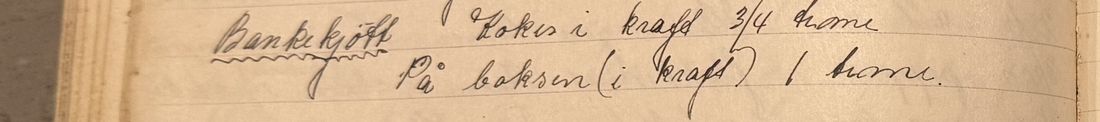 Bankekjött Kokes i kraft 3/4 time
På boksen (i kraft) 1 time.